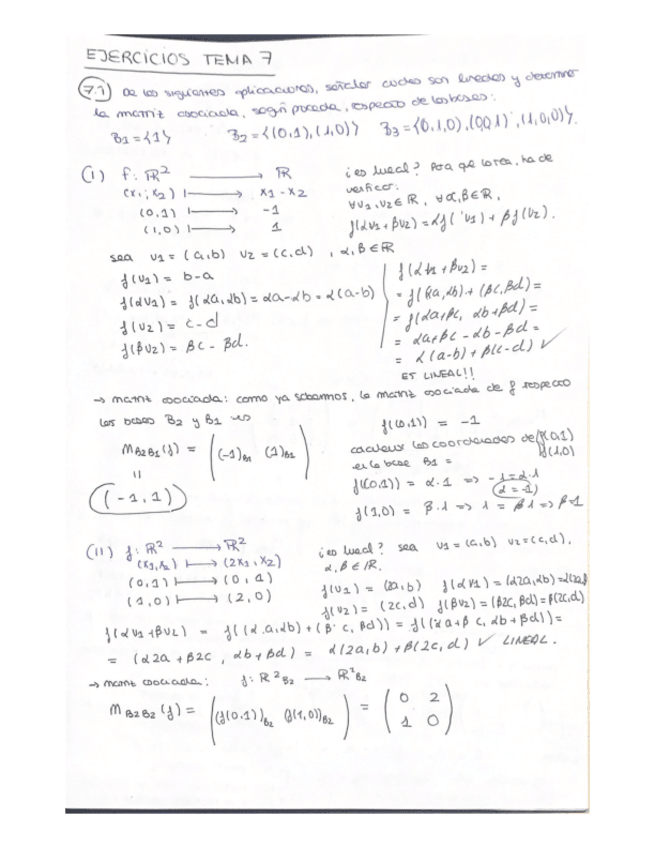 EJERCICIOS TEMA 7
7.1) De las siguientes aplicaciones, señalar cuales son lineales y determinar
la matriz asociada, según proceda, respecto de las bases:
B1 = {1} B2 = {(0,1),(1,0)} B3 = {(0,1,0),(0,0,1),(1,0,0)}.
(I) f: R² → R
(x1, x2) ↦ x1 - x2
(0,1) ↦ -1
(1,0) ↦ 1
¿es lineal? Para que lo sea, ha de
verificar:
∀v1, v2 ∈ R, ∀α, β ∈ R,
f(αv1 + βv2) = αf(v1) + βf(v2).
sea v1 = (a,b) v2 = (c,d), α, β ∈ R
f(v1) = b-a
f(αv1) = f(αa, αb) = αa - αb = α(a-b)
f(v2) = c-d
f(βv2) = βc - βd.
f(αv1 + βv2) =
= f((αa, αb) + (βc, βd)) =
= f(αa+βc, αb+βd) =
= αa+βc - αb - βd =
= α(a-b) + β(c-d) ✓
ES LINEAL!!
→ matriz asociada: como ya sabemos, la matriz asociada de f respecto
las bases B2 y B1 es
M B2B1 (f) = ((-1)B1 (1)B1)
=
(-1, 1)
f((0,1)) = -1
calculamos las coordenadas de f(0,1)
f(1,0)
en la base B1 =
f((0,1)) = α·1 => -1 = α·1
(α = -1)
f(1,0) = β·1 => 1 = β·1 => β = 1
(II) f: R² → R²
(x1, x2) ↦ (2x1, x2)
(0,1) ↦ (0,1)
(1,0) ↦ (2,0)
¿es lineal? sea v1 = (a,b) v2 = (c,d),
α, β ∈ R.
f(v1) = (2a, b) f(αv1) = (α2a, αb) = α(2a,b)
f(v2) = (2c, d) f(βv2) = (β2c, βd) = β(2c,d)
f(αv1 + βv2) = f((α·a, αb) + (β·c, βd)) = f((αa + βc, αb + βd)) =
= (α2a + β2c, αb + βd) = α(2a, b) + β(2c, d) ✓ LINEAL.
→ matriz asociada: f: R² B2 → R² B2
M B2B2 (f) = ((f(0,1))B2 (f(1,0))B2) = (0 2
1 0)